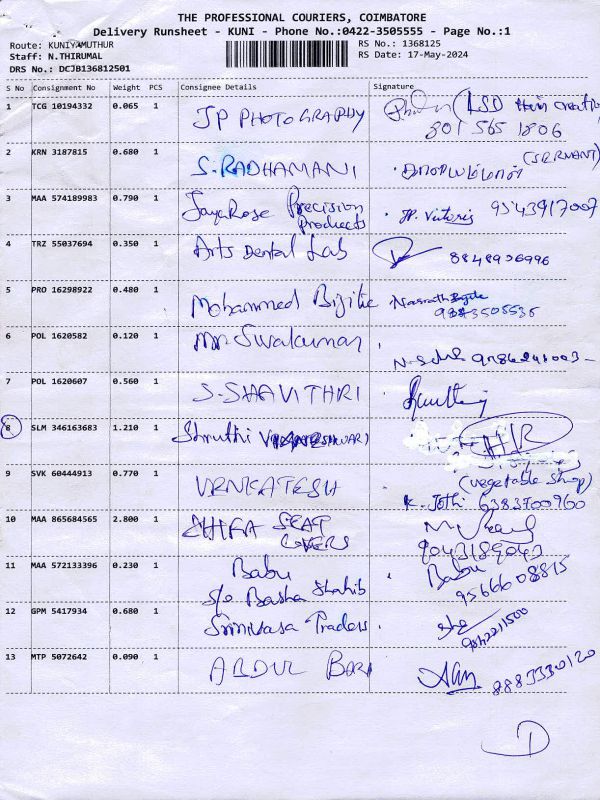 THE PROFESSIONAL COURIERS, COIMBATORE
Delivery Runsheet - KUNI - Phone No.:0422-3505555 - Page No.:1
Route: KUNIYAMUTHUR
RS No.: 1368125
Staff: N.THIRUMAL
RS Date: 17-May-2024
DRS No.: DCJB136812501
S No Consignment No Weight PCS Consignee Details Signature
1 TCG 10194332 0.065 1 JP PHOTOGRAPHY
801 565 1806
2 KRN 3187815 0.680 1 S. RADHAMANI (SERVANT)
3 MAA 574189983 0.790 1 JayaRose Precision Products 9543917007
4 TRZ 55037694 0.350 1 Arts Dental Lab 8848906996
5 PRO 16298922 0.480 1 Mohammed
6 POL 1620582 0.120 1 Mr Sivakumar
7 POL 1620607 0.560 1 S. SHAVITHRI
8 SLM 346163683 1.210 1 Shruthi
(vegetable shop)
9 SVK 60444913 0.770 1 VENKATESH K. Jothi 6383700960
10 MAA 865684565 2.800 1 SEAT COVERS
9043189043
11 MAA 572133396 0.230 1 Babu Babu
S/o Basha Shahib 9566608815
12 GPM 5417934 0.680 1 Srinivasa Traders
9842211500
13 MTP 5072642 0.090 1 ABDUL BARI 8883330120